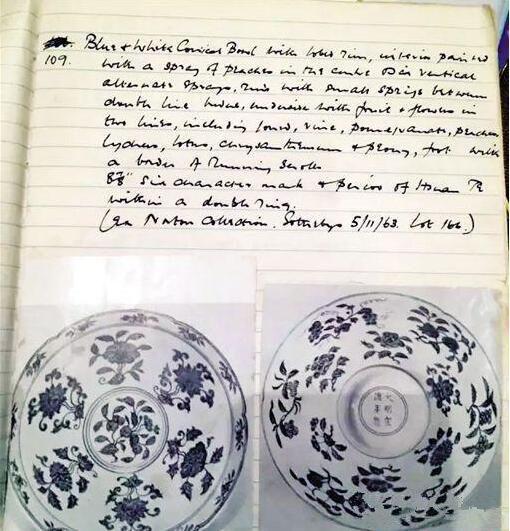 109. Blue & White Conical Bowl with lobed rim, interior painted
with a spray of peaches in the centre six vertical
alternate sprays, rim with small sprigs between
double line borders, underside with fruit & flowers in
two lines, including vine, pomegranate, peaches
lychees, lotus, chrysanthemum & peony, foot with
a border of Running Scrolls
8⅞" Six character mark & period of Hsuan Te
within a double ring.
(Ex Norton Collection. Sothebys 5/11/63. Lot 166.)
大明宣
德年製